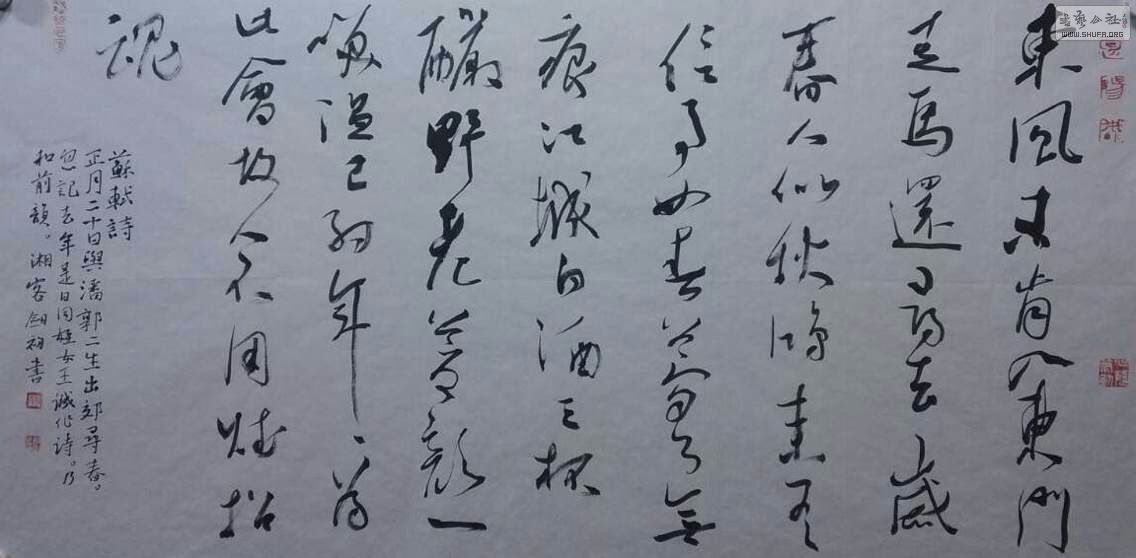 東風未肯入東門
走馬還尋去歲
春人似秋鴻来有
信事如春夢了無
痕江城白酒三杯
釅野老蒼顏一
笑溫已約年〻為
此會故人不用賦招
魂
蘇軾詩
正月二十日與潘郭二生出郊尋春。
忽記去年是日同姪女王誠作詩。乃
和前韻。湘客 書
書法公社
WWW.SHUFA.ORG